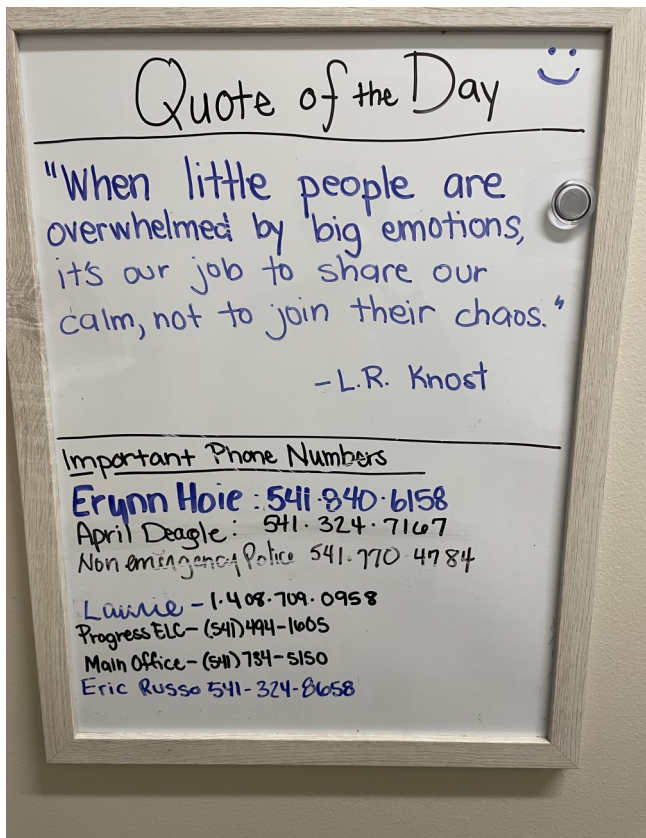 Quote of the Day
"When little people are
overwhelmed by big emotions,
it's our job to share our
calm, not to join their chaos."
-L.R. Knost
Important Phone Numbers
Erynn Hoie: 541-840-6158
April Deagle: 541.324.7167
Non emergency Police 541.770.4784
Laurie - 1.408.709.0958
Progress ELC- (541)494-1605
Main Office- (541)734-5150
Eric Russo 541-324-8658